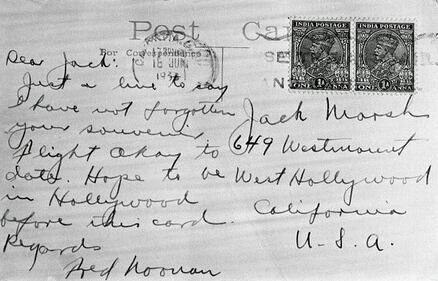 Post Ca
For Correspondence
16 JUN
INDIA POSTAGE
ONE 1A ANNA
INDIA POSTAGE
ONE 1A ANNA
Dear Jack:
Just a line to say
I have not forgotten
your souvenir.
Flight Okay to
date. Hope to be
in Hollywood
before this card.
Regards
Fred Noonan
Jack Marsh
649 Westmount
West Hollywood
California
U-S.A.